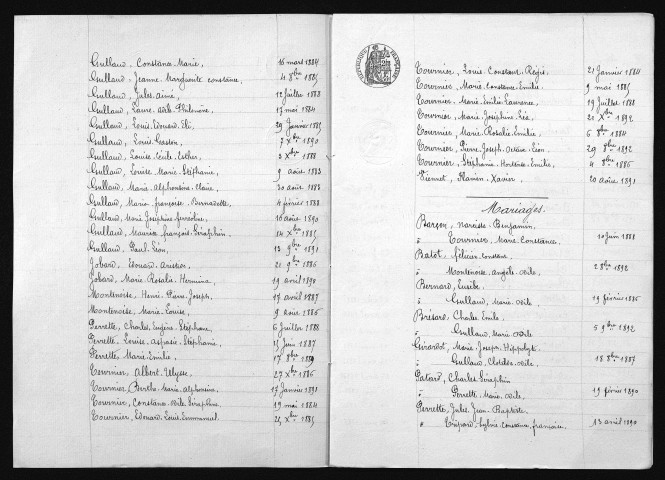 Gulland, Constance Marie, 16 mars 1884
Gulland, Jeanne Marguerite Constance, 4 8bre 1885
Gulland, Jules Aimé, 12 Juillet 1888
Gulland, Laure 17 mai 1884
Gulland, Louis Edouard Eli, 29 Janvier 1885
Gulland, Louis Gaston, 7 Xbre 1890
Gulland, Louise Esther, 2 Xbre 1888
Gulland, Louise Marie Stéphanie, 9 août 1883
Gulland, Marie Alphonsine Claire, 30 août 1883
Gulland, Marie françoise Bernadette, 4 février 1888
Gulland, Marie Joséphine 16 août 1890
Gulland, Maurice françois Séraphin, 14 Xbre 1885
Gulland, Paul Léon, 13 9bre 1891
Jobard, Edouard 21 9bre 1886
Jobard, Marie Rosalie Hermina, 19 avril 1890
Montenoise, Henri Pierre Joseph, 17 avril 1887
Montenoise, Marie Louise, 9 août 1886
Perrette, Charles Eugène Stéphane, 6 Juillet 1888
Perrette, Louise Aspasie Stéphanie, 15 Juin 1887
Perrette, Marie Emilie, 17 8bre 1889
Tournier, Albert Ulysse, 27 Xbre 1886
Tournier, Berthe Marie Alphonsine, 17 Janvier 1891
Tournier, Constance Odile Séraphine, 19 mai 1884
Tournier, Edouard Louis Emmanuel, 25 Xbre 1885
Tournier, Louis Constant Régis, 21 Janvier 1884
Tournier, Marie Constance Emilie, 9 mai 1885
Tournier, Marie Emilie Laurence, 19 Juillet 1888
Tournier, Marie Joséphine Léa, 21 Xbre 1892
Tournier, Marie Rosalie Emilie, 6 8bre 1884
Tournier, Pierre Joseph Octave Léon, 29 8bre 1892
Tournier, Stéphanie Hortense Emilie, 4 8bre 1886
Viennet, Flavien Xavier, 20 août 1891
Mariages.
Barçon, Narcisse Benjamin,
à Tournier, Marie Constance, 10 juin 1888
Balot, Félicien Constant
à Montenoise, Angèle Odile, 2 8bre 1892
Bernard, Eusèbe
à Gulland, Marie Odile, 19 février 1886
Brésard, Charles Emile,
à Gulland Marie Odile 5 9bre 1892
Girardot, Marie Joseph Hippolyte
à Gulland, Clotilde Odile, 18 8bre 1887
Patard, Charles Séraphin
à Perrette Marie Odile, 19 février 1890
Perrette, Jules Jean Baptiste
à Sylvie Constance françoise, 13 avril 1890